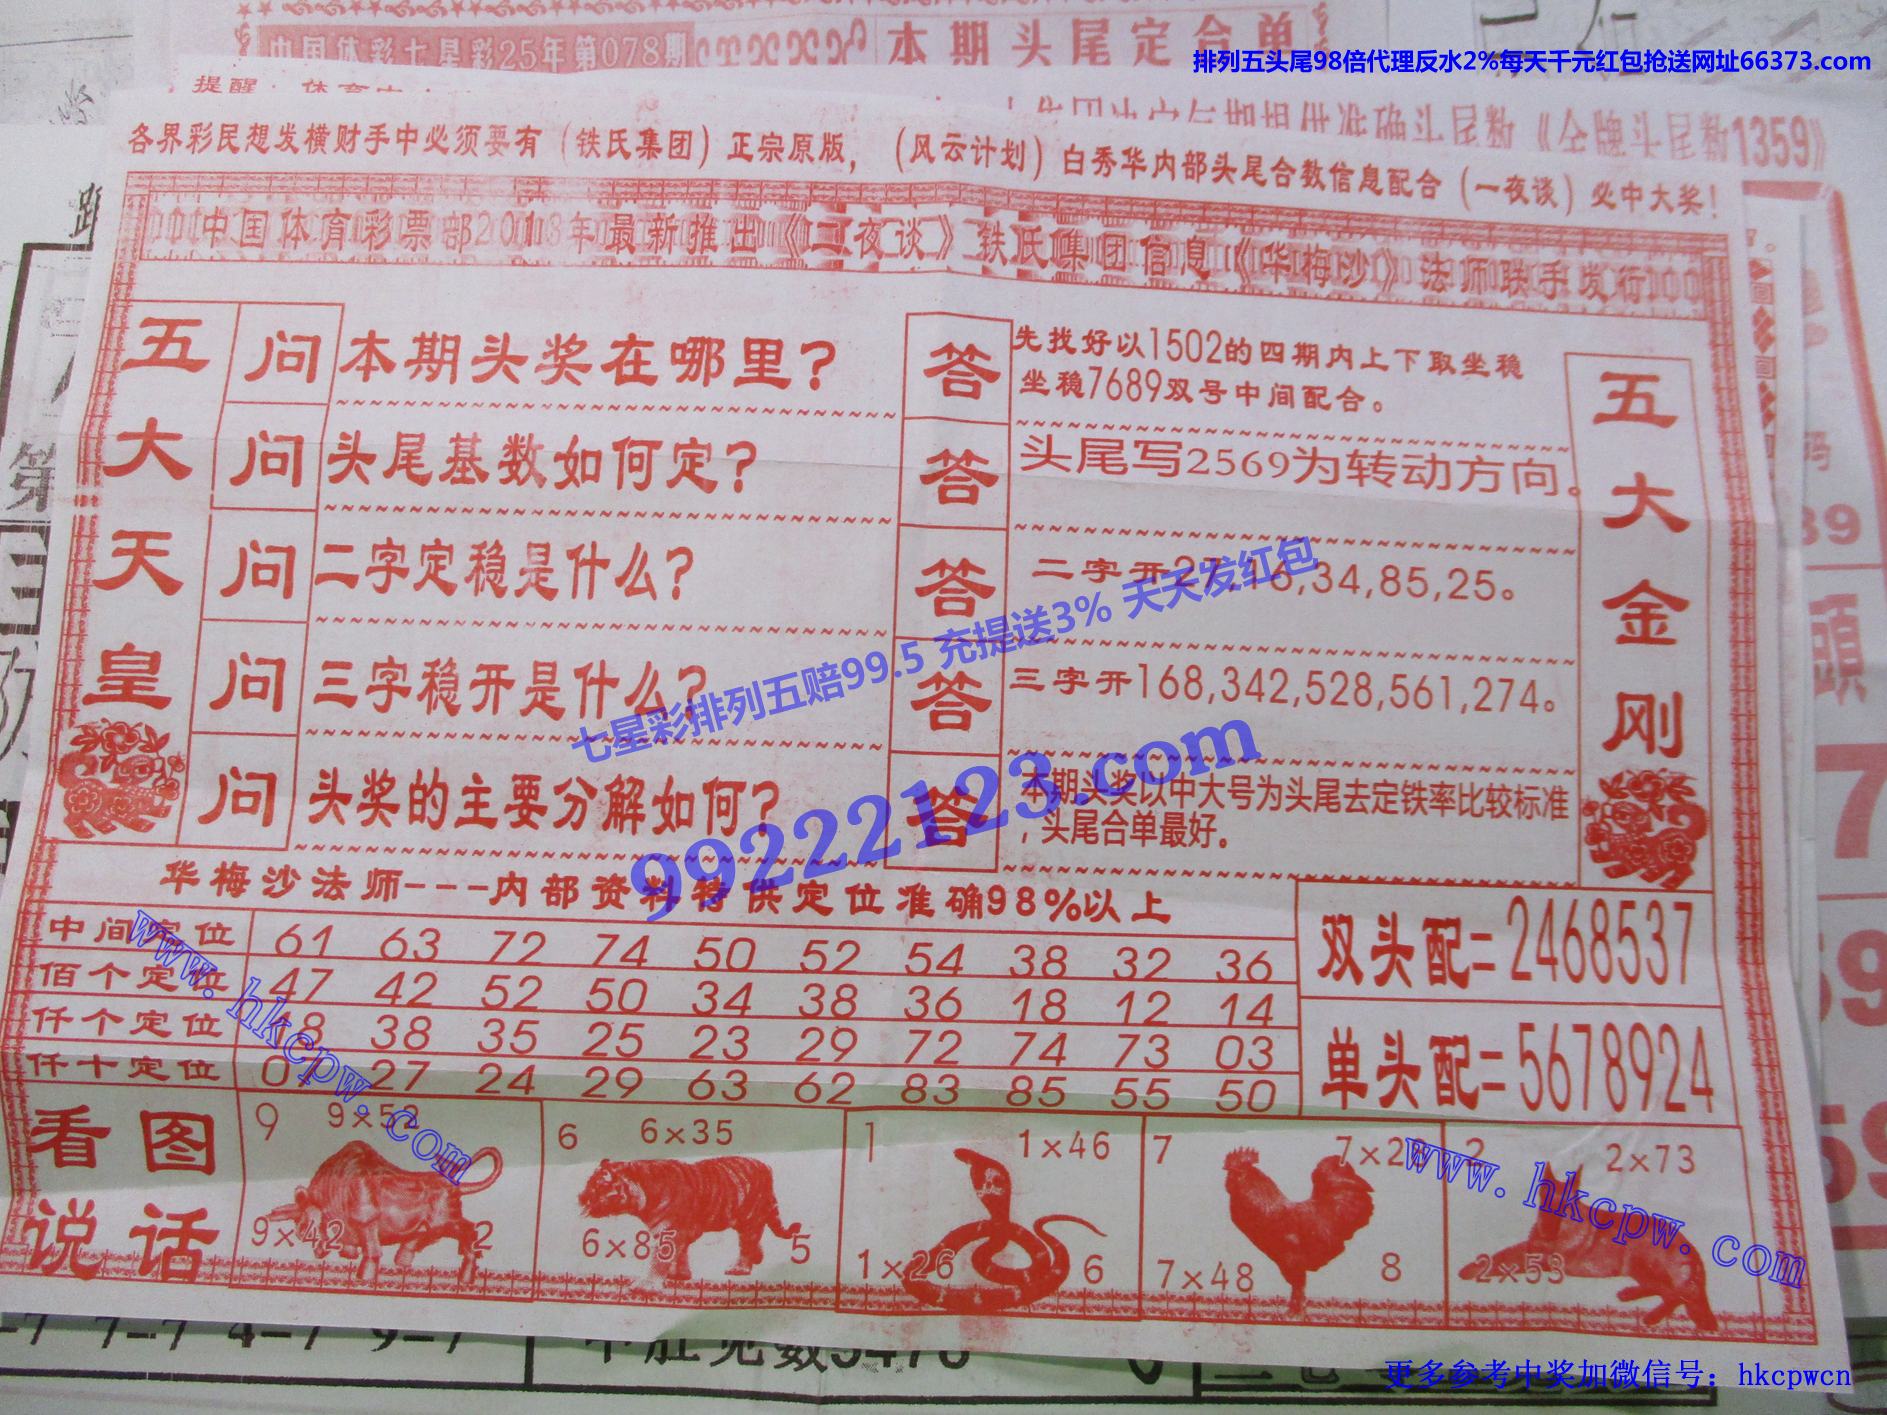 中国体彩七星彩25年第078期
本期头尾定合单
排列五头尾98倍代理反水2%每天千元红包抢送网址66373.com
提醒:体育
准确头尾数《金牌头尾数1359》
各界彩民想发横财手中必须要有（铁氏集团）正宗原版，（风云计划）白秀华内部头尾合数信息配合（一夜谈）必中大奖！
中国体育彩票部2018年最新推出《一夜谈》铁氏集团信息《华梅沙》法师联手发行
五大天皇
问 本期头奖在哪里？
答 先找好以1502的四期内上下取坐稳
坐稳7689双号中间配合。
问 头尾基数如何定？
答 头尾写2569为转动方向。
问 二字定稳是什么？
答 二字开27,16,34,85,25。
问 三字稳开是什么？
答 三字开168,342,528,561,274。
问 头奖的主要分解如何？
答 本期头奖以中大号为头尾去定铁率比较标准
，头尾合单最好。
五大金刚
七星彩排列五赔99.5 充提送3% 天天发红包
99222123.com
华梅沙法师---内部资料特供定位准确98%以上
中间定位 61 63 72 74 50 52 54 38 32 36
佰个定位 47 42 52 50 34 38 36 18 12 14
仟个定位 18 38 35 25 23 29 72 74 73 03
仟十定位 07 27 24 29 63 62 83 85 55 50
双头配=2468537
单头配=5678924
www.hkcpw.com
看图
说话
9 9×52
9×42 2
6 6×35
6×85 5
1 1×46
1×26 6
7 7×28
7×48 8
2 2×73
2×53
www.hkcpw.com
更多参考中奖加微信号：hkcpwcn